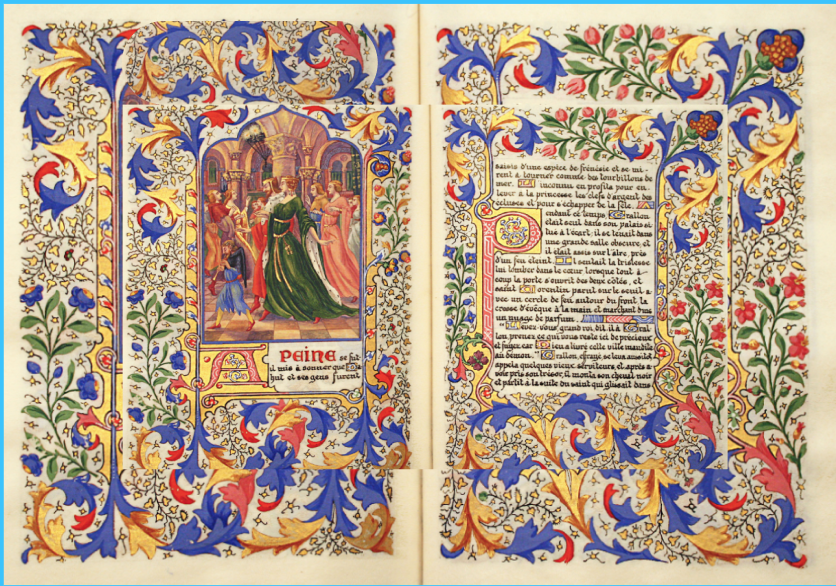 A PEINE se fut
il mis à sonner que Ba
hut et ses gens furent
saisis d'une espèce de frénésie et se mi
rent à tourner comme des tourbillons de
mer. L'inconnu en profita pour en
lever à la princesse les clefs d'argent des
écluses et pour s'échapper de la fête.
Pendant ce temps Grallon
était seul dans son palais si
tué à l'écart il se tenait dans
une grande salle obscure, et
il était assis sur l'âtre, près
d'un feu éteint. Il sentait la tristesse
lui tomber dans le cœur lorsque tout à
coup la porte s'ouvrit des deux côtés, et
saint Corentin parut sur le seuil a
vec un cercle de feu autour du front la
crosse d'évêque à la main et marchant dans
un nuage de parfum.
"Levez-vous grand roi, dit-il à Gral
lon prenez ce qui vous reste ici de précieux
et fuyez car Dieu a livré cette ville maudite
au démon." Grallon effrayé se leva aussitôt
appela quelques vieux serviteurs et après a
voir pris son trésor, il monta son cheval noir
et partit à la suite du saint qui glissait dans